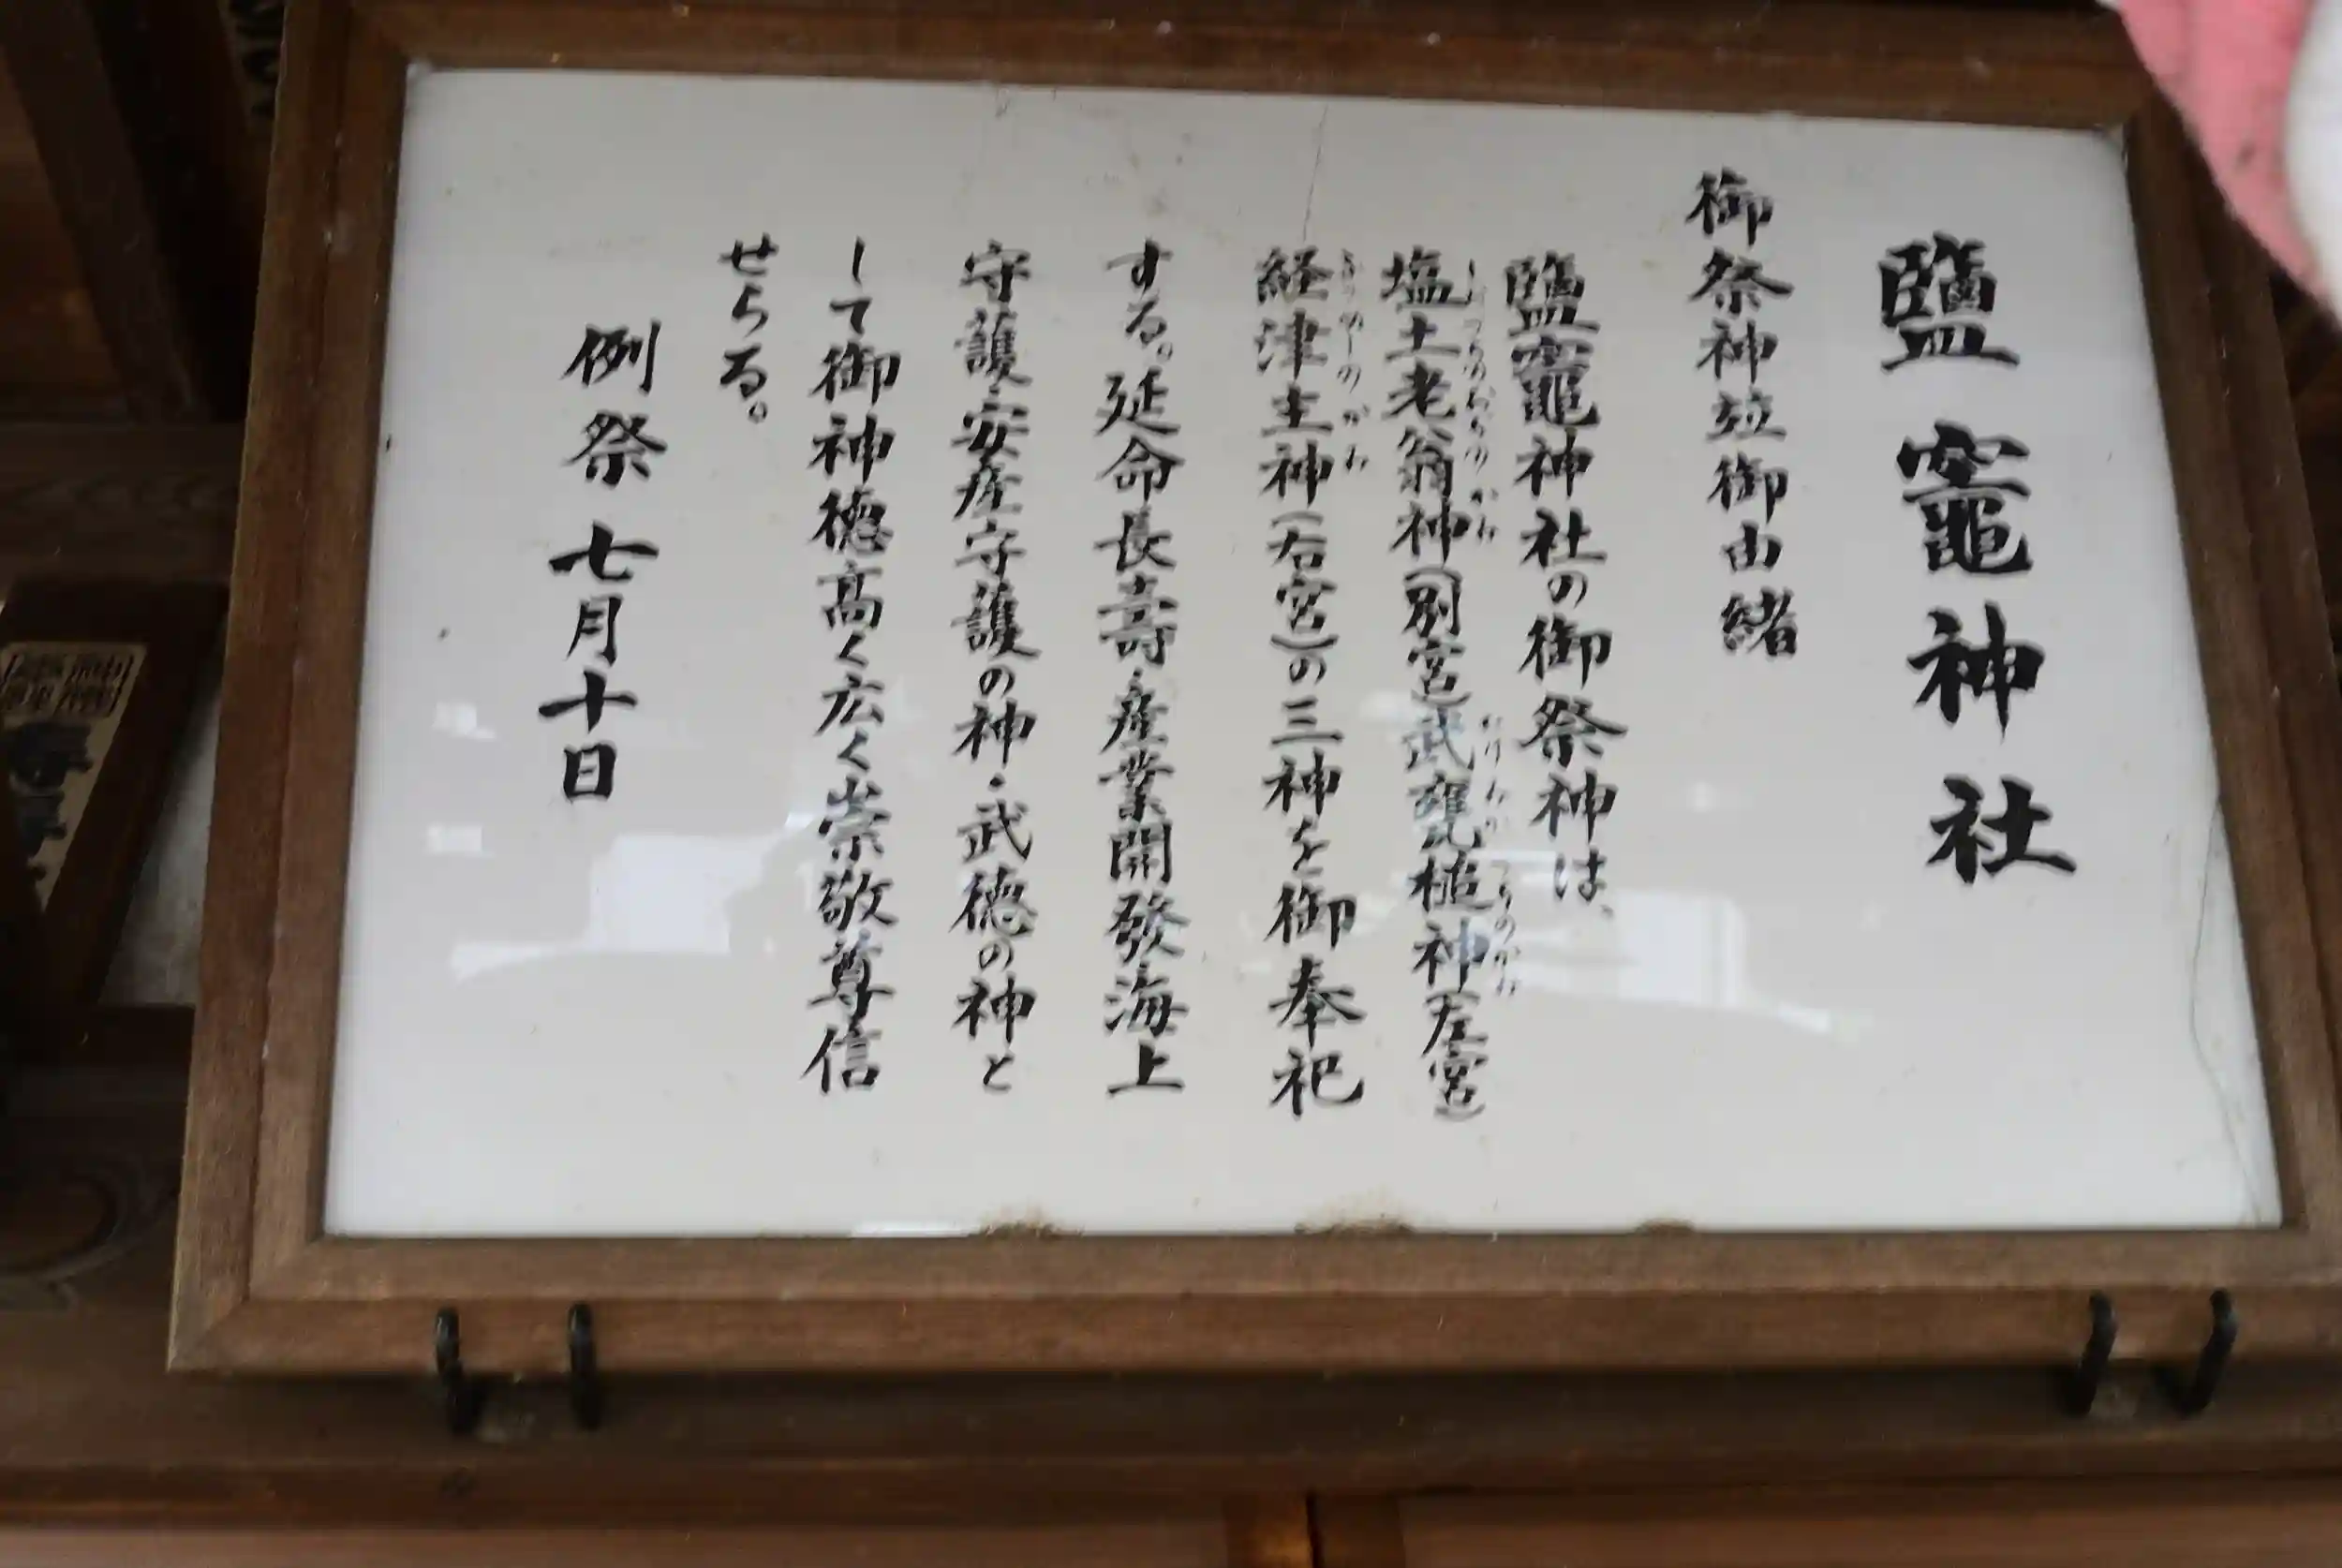 鹽竈神社
御祭神竝御由緒
鹽竈神社の御祭神は、
塩土老翁神(別宮)武甕槌神(左宮)
経津主神(右宮)の三神を御奉祀
する。延命長壽・産業開發海上
守護・安産守護の神・武徳の神と
して御神徳高く広く崇敬尊信
せらる。
例祭 七月十日